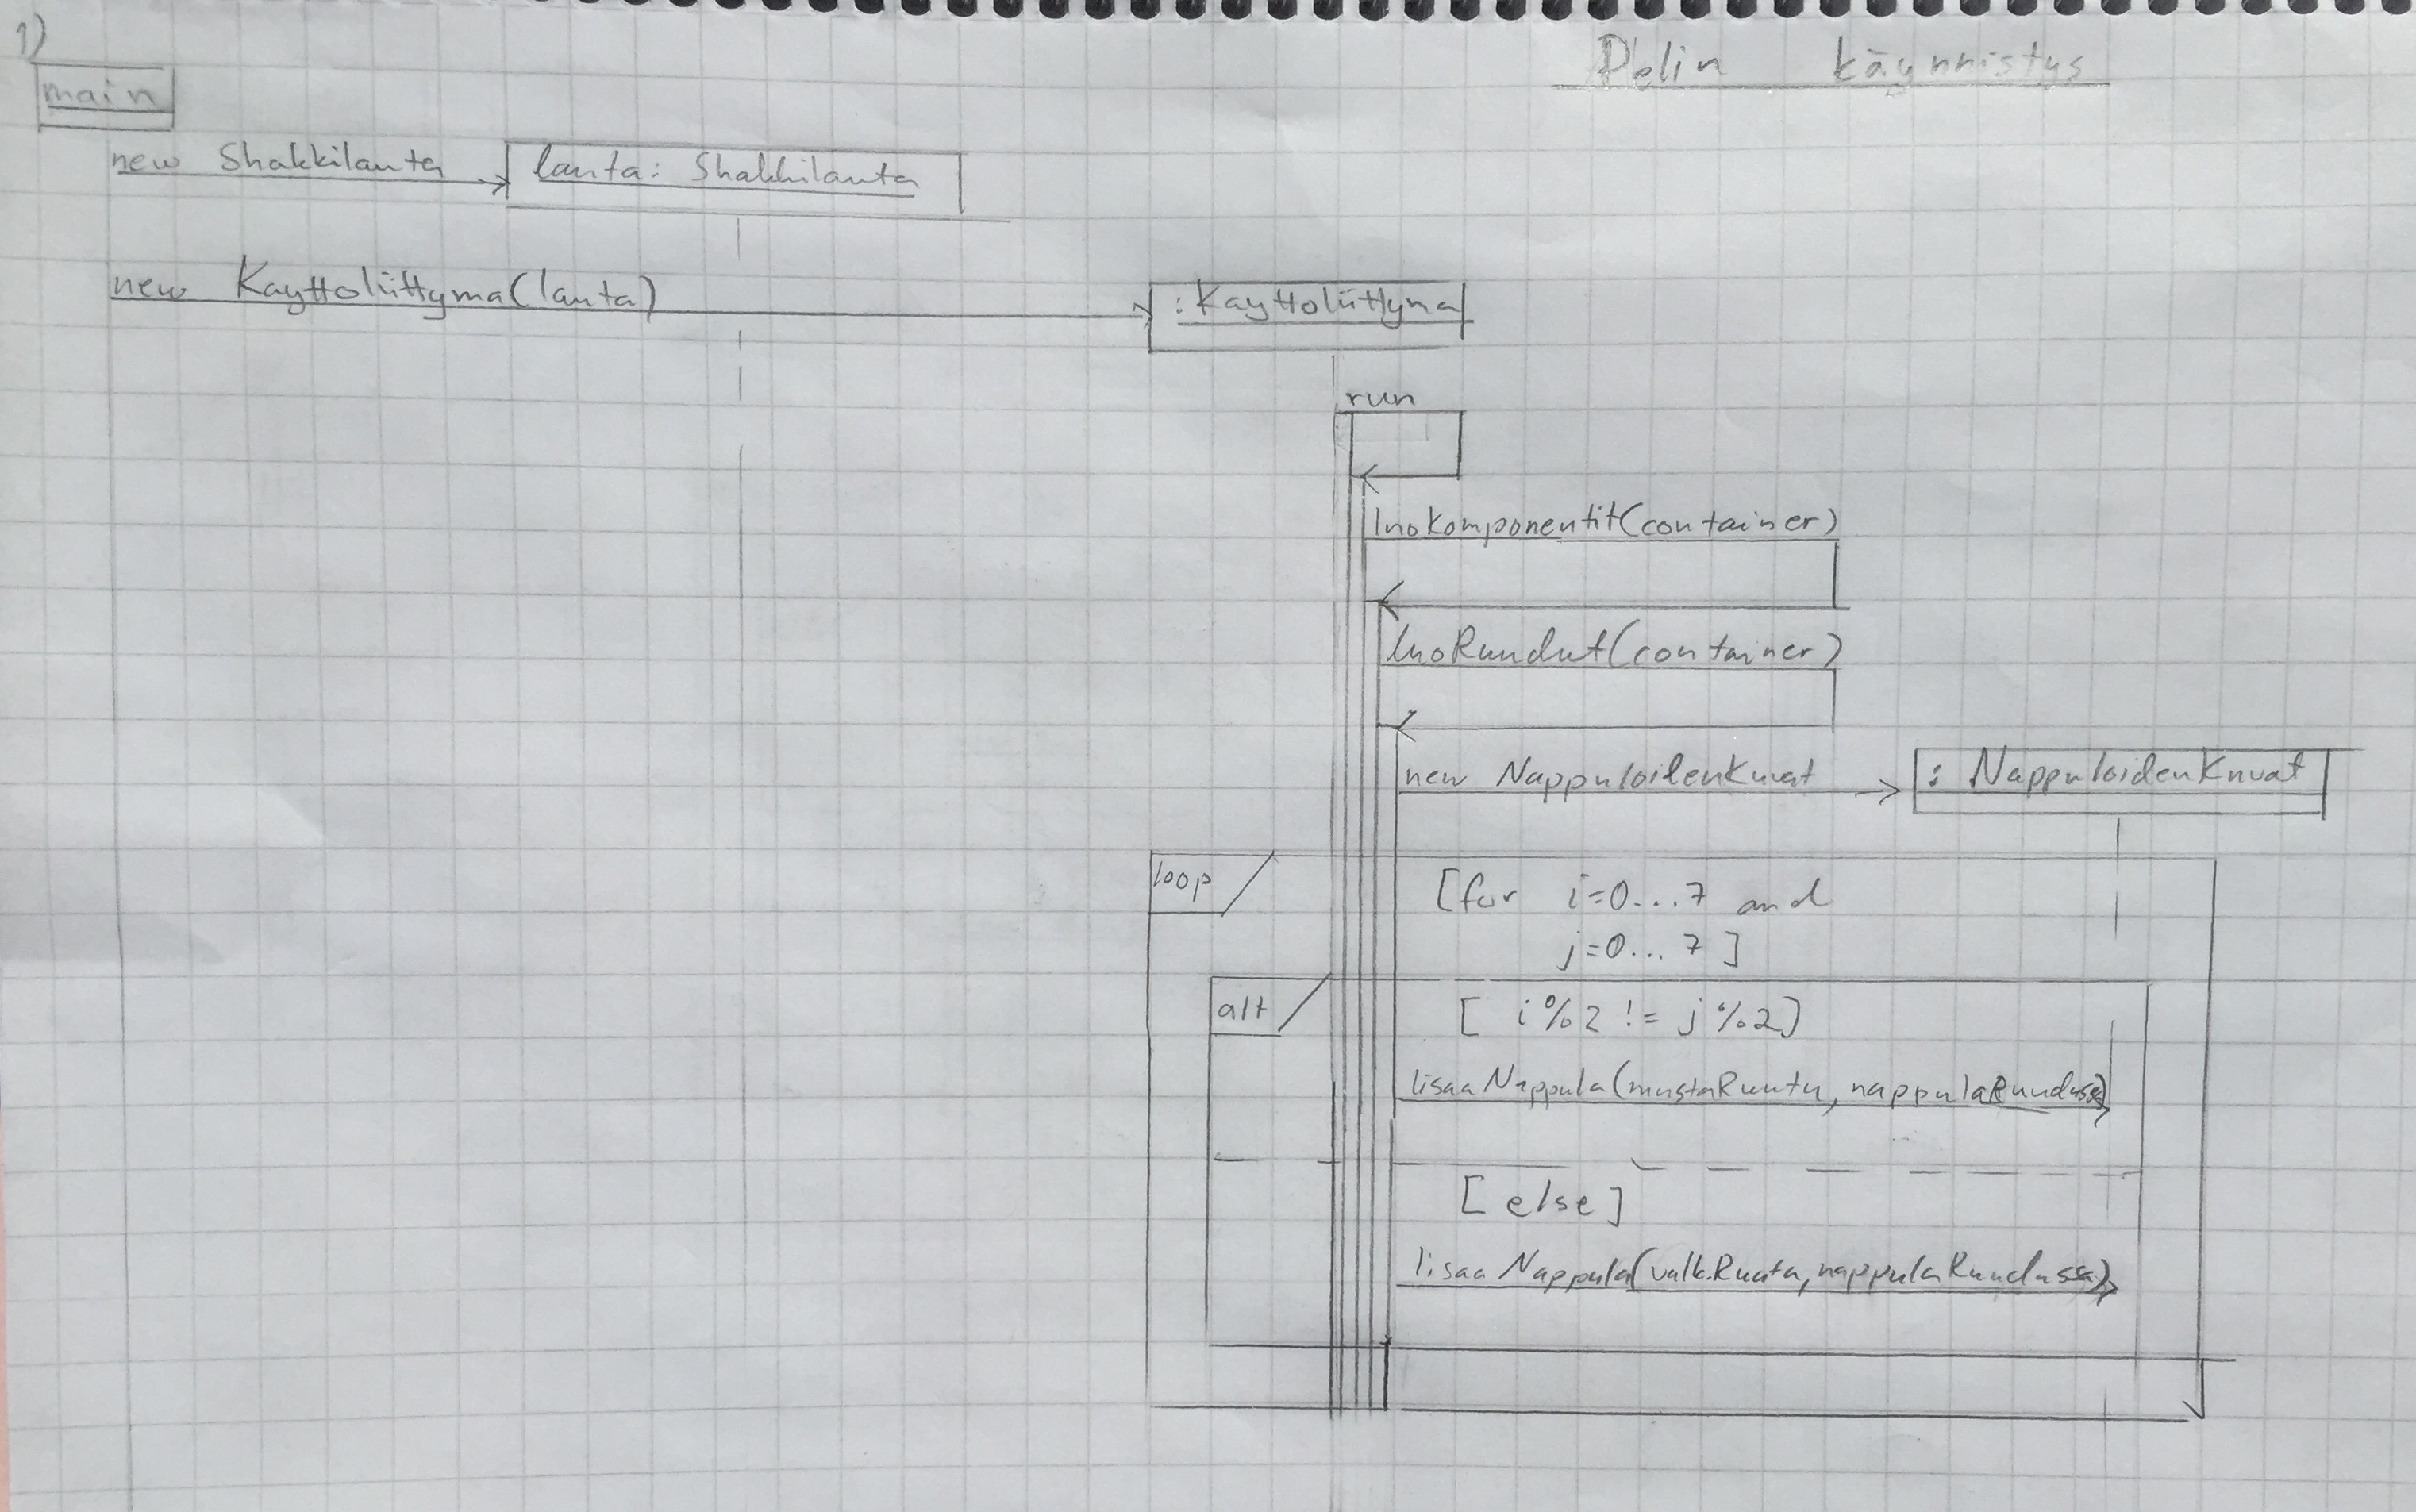 1)
Pelin käynnistys
main
new Shakkilauta
lauta: Shakkilauta
new Kayttoliittyma(lauta)
:Kayttoliittyma
run
luoKomponentit(container)
luoRuudut(container)
new NappuloidenKuvat
: NappuloidenKuvat
loop
[for i=0...7 and
j=0...7]
alt
[ i%2 != j%2]
lisaaNappula(mustaRuutu, nappulaRuudussa)
[else]
lisaaNappula(valk.Ruutu, nappulaRuudussa)